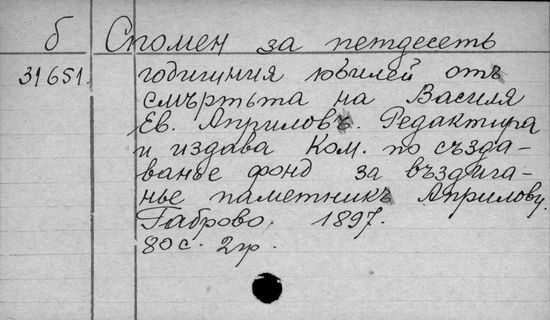 б Спомен за петдесеть
31651. годишния юбилей отъ
смъртьта на Василя
Ев. Априловъ. Редактира
и издава Ком. по създа-
ванье фонд за въздига-
нье паметникъ Априлову.
Габрово, 1897.
80 с. 2 гр.